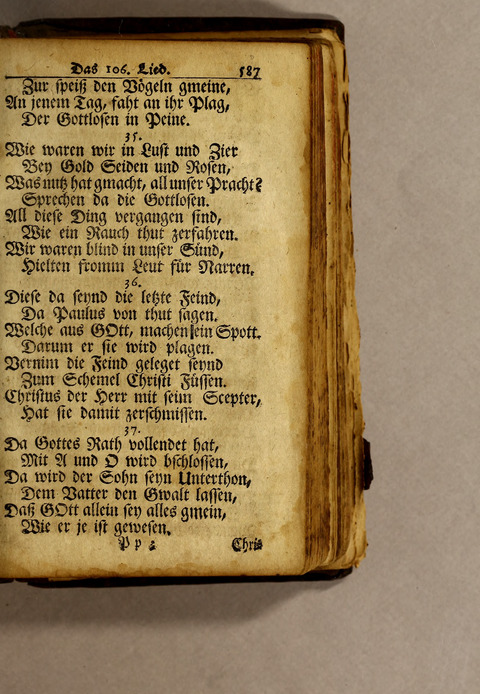 Das 106. Lied. 587
Zur speiß den Vögeln gmeine,
An jenem Tag, faht an ihr Plag,
Der Gottlosen in Peine.
35.
Wie waren wir in Lust und Zier
Bey Gold Seiden und Rosen,
Was nutz hat gmacht, all unser Pracht?
Sprechen da die Gottlosen.
All diese Ding vergangen sind,
Wie ein Rauch thut zerfahren.
Wir waren blind in unser Sünd,
Hielten fromm Leut für Narren.
36.
Diese da seynd die letzte Feind,
Da Paulus von thut sagen.
Welche aus GOtt, machen ein Spott.
Darum er sie wird plagen.
Vernim die Feind geleget seynd
Zum Schemel Christi Füssen.
Christus der Herr mit seim Scepter,
Hat sie damit zerschmissen.
37.
Da Gottes Rath vollendet hat,
Mit A und O wird bschlossen,
Da wird der Sohn seyn Unterthon,
Dem Vatter den Gwalt lassen,
Daß GOtt allein sey alles gmein,
Wie er je ist gewesen.
P p 2 Chris